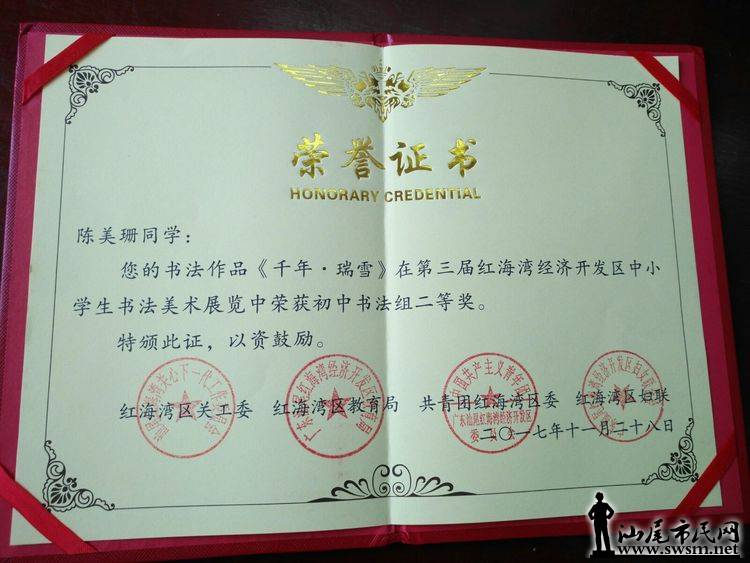 荣誉证书
HONORARY CREDENTIAL
陈美珊同学：
您的书法作品《千年·瑞雪》在第三届红海湾经济开发区中小
学生书法美术展览中荣获初中书法组二等奖。
特颁此证，以资鼓励。
红海湾区关工委 红海湾区教育局 共青团红海湾区委 红海湾区妇联
二〇一七年十一月二十八日
汕尾市民网
www.swsm.net